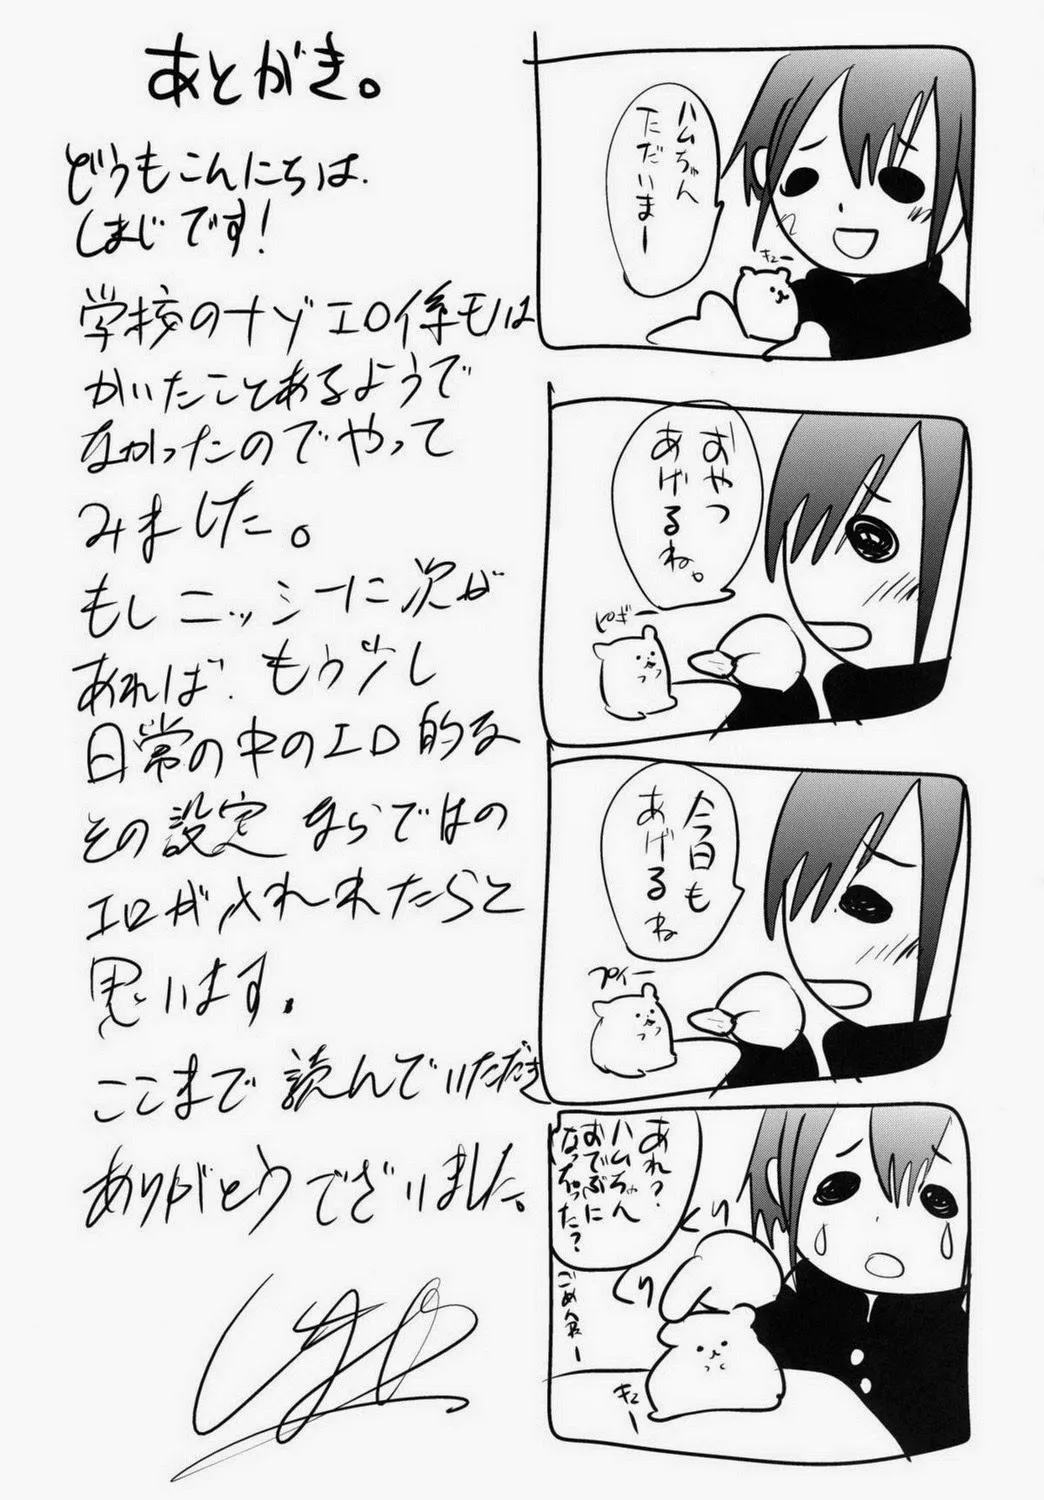 あとがき。
どうもこんにちは、
しまじです!
学校のナゾエロ係モは
かいたことあるようで
なかったのでやって
みました。
もしニッシーに次が
あれば、もう少し
日常の中のエロ的な
その設定ならではの
エロが入れれたらと
思います。
ここまで読んでいただき
ありがとうございました。
ハムちゃん
ただいまー
キュー
おやつ
あげるね。
今日も
あげるね
プイー
あれ?
ハムちゃん
おでぶに
なっちゃった?
くり
くり
キュー